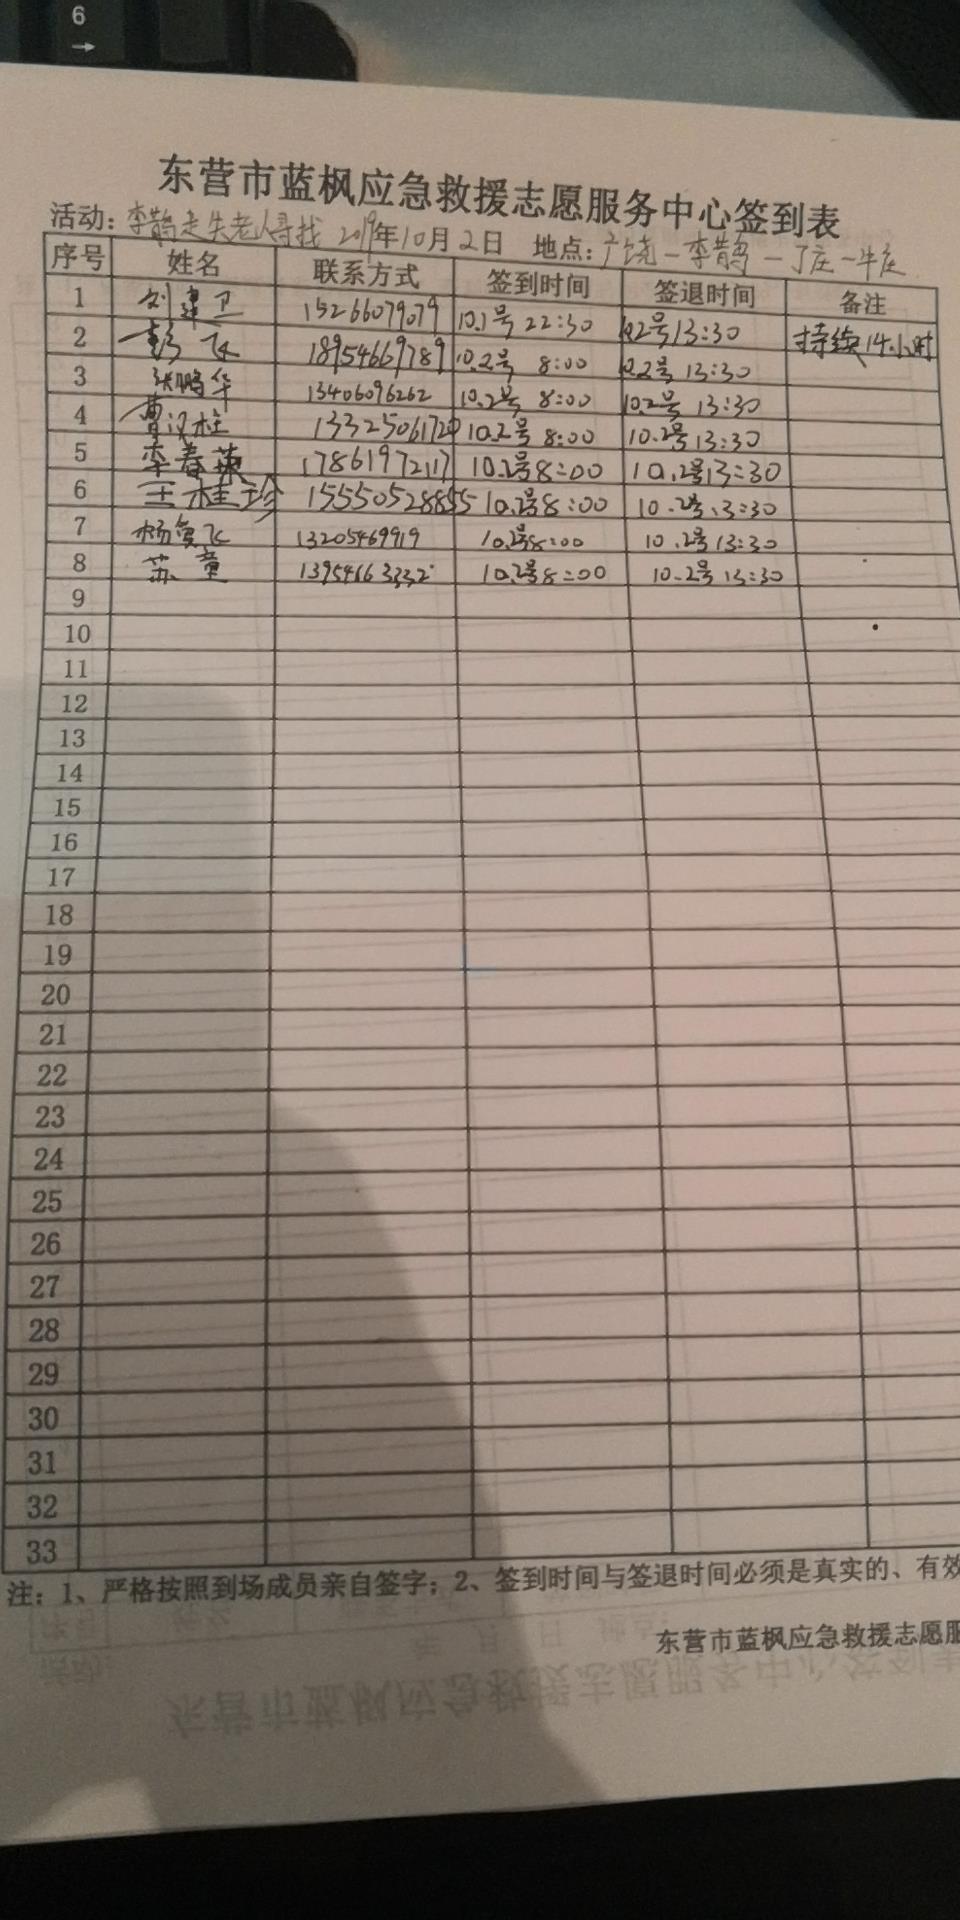 6
→
东营市蓝枫应急救援志愿服务中心签到表
活动：李鹊走失老人寻找 2019年10月2日 地点：广饶－李鹊－丁庄－牛庄
序号 姓名 联系方式 签到时间 签退时间 备注
1 刘建卫 15266079079 10.1号 22:30 10.2号13:30 持续14小时
2 彭飞 18954669789 10.2号 8:00 10.2号 13:30
3 张鹏华 13406096262 10.2号 8:00 10.2号 13:30
4 曹汉柱 13325061720 10.2号 8:00 10.2号13:30
5 李春英 17861972117 10.2号8:00 10.2号13:30
6 王桂珍 15550528855 10.2号8:00 10.2号13:30
7 杨俊飞 13205469919 10.2号8:00 10.2号13:30
8 苏童 13954663332 10.2号8:00 10.2号 13:30
9
10
11
12
13
14
15
16
17
18
19
20
21
22
23
24
25
26
27
28
29
30
31
32
33
注：1、严格按照到场成员亲自签字；2、签到时间与签退时间必须是真实的、有效
东营市蓝枫应急救援志愿服